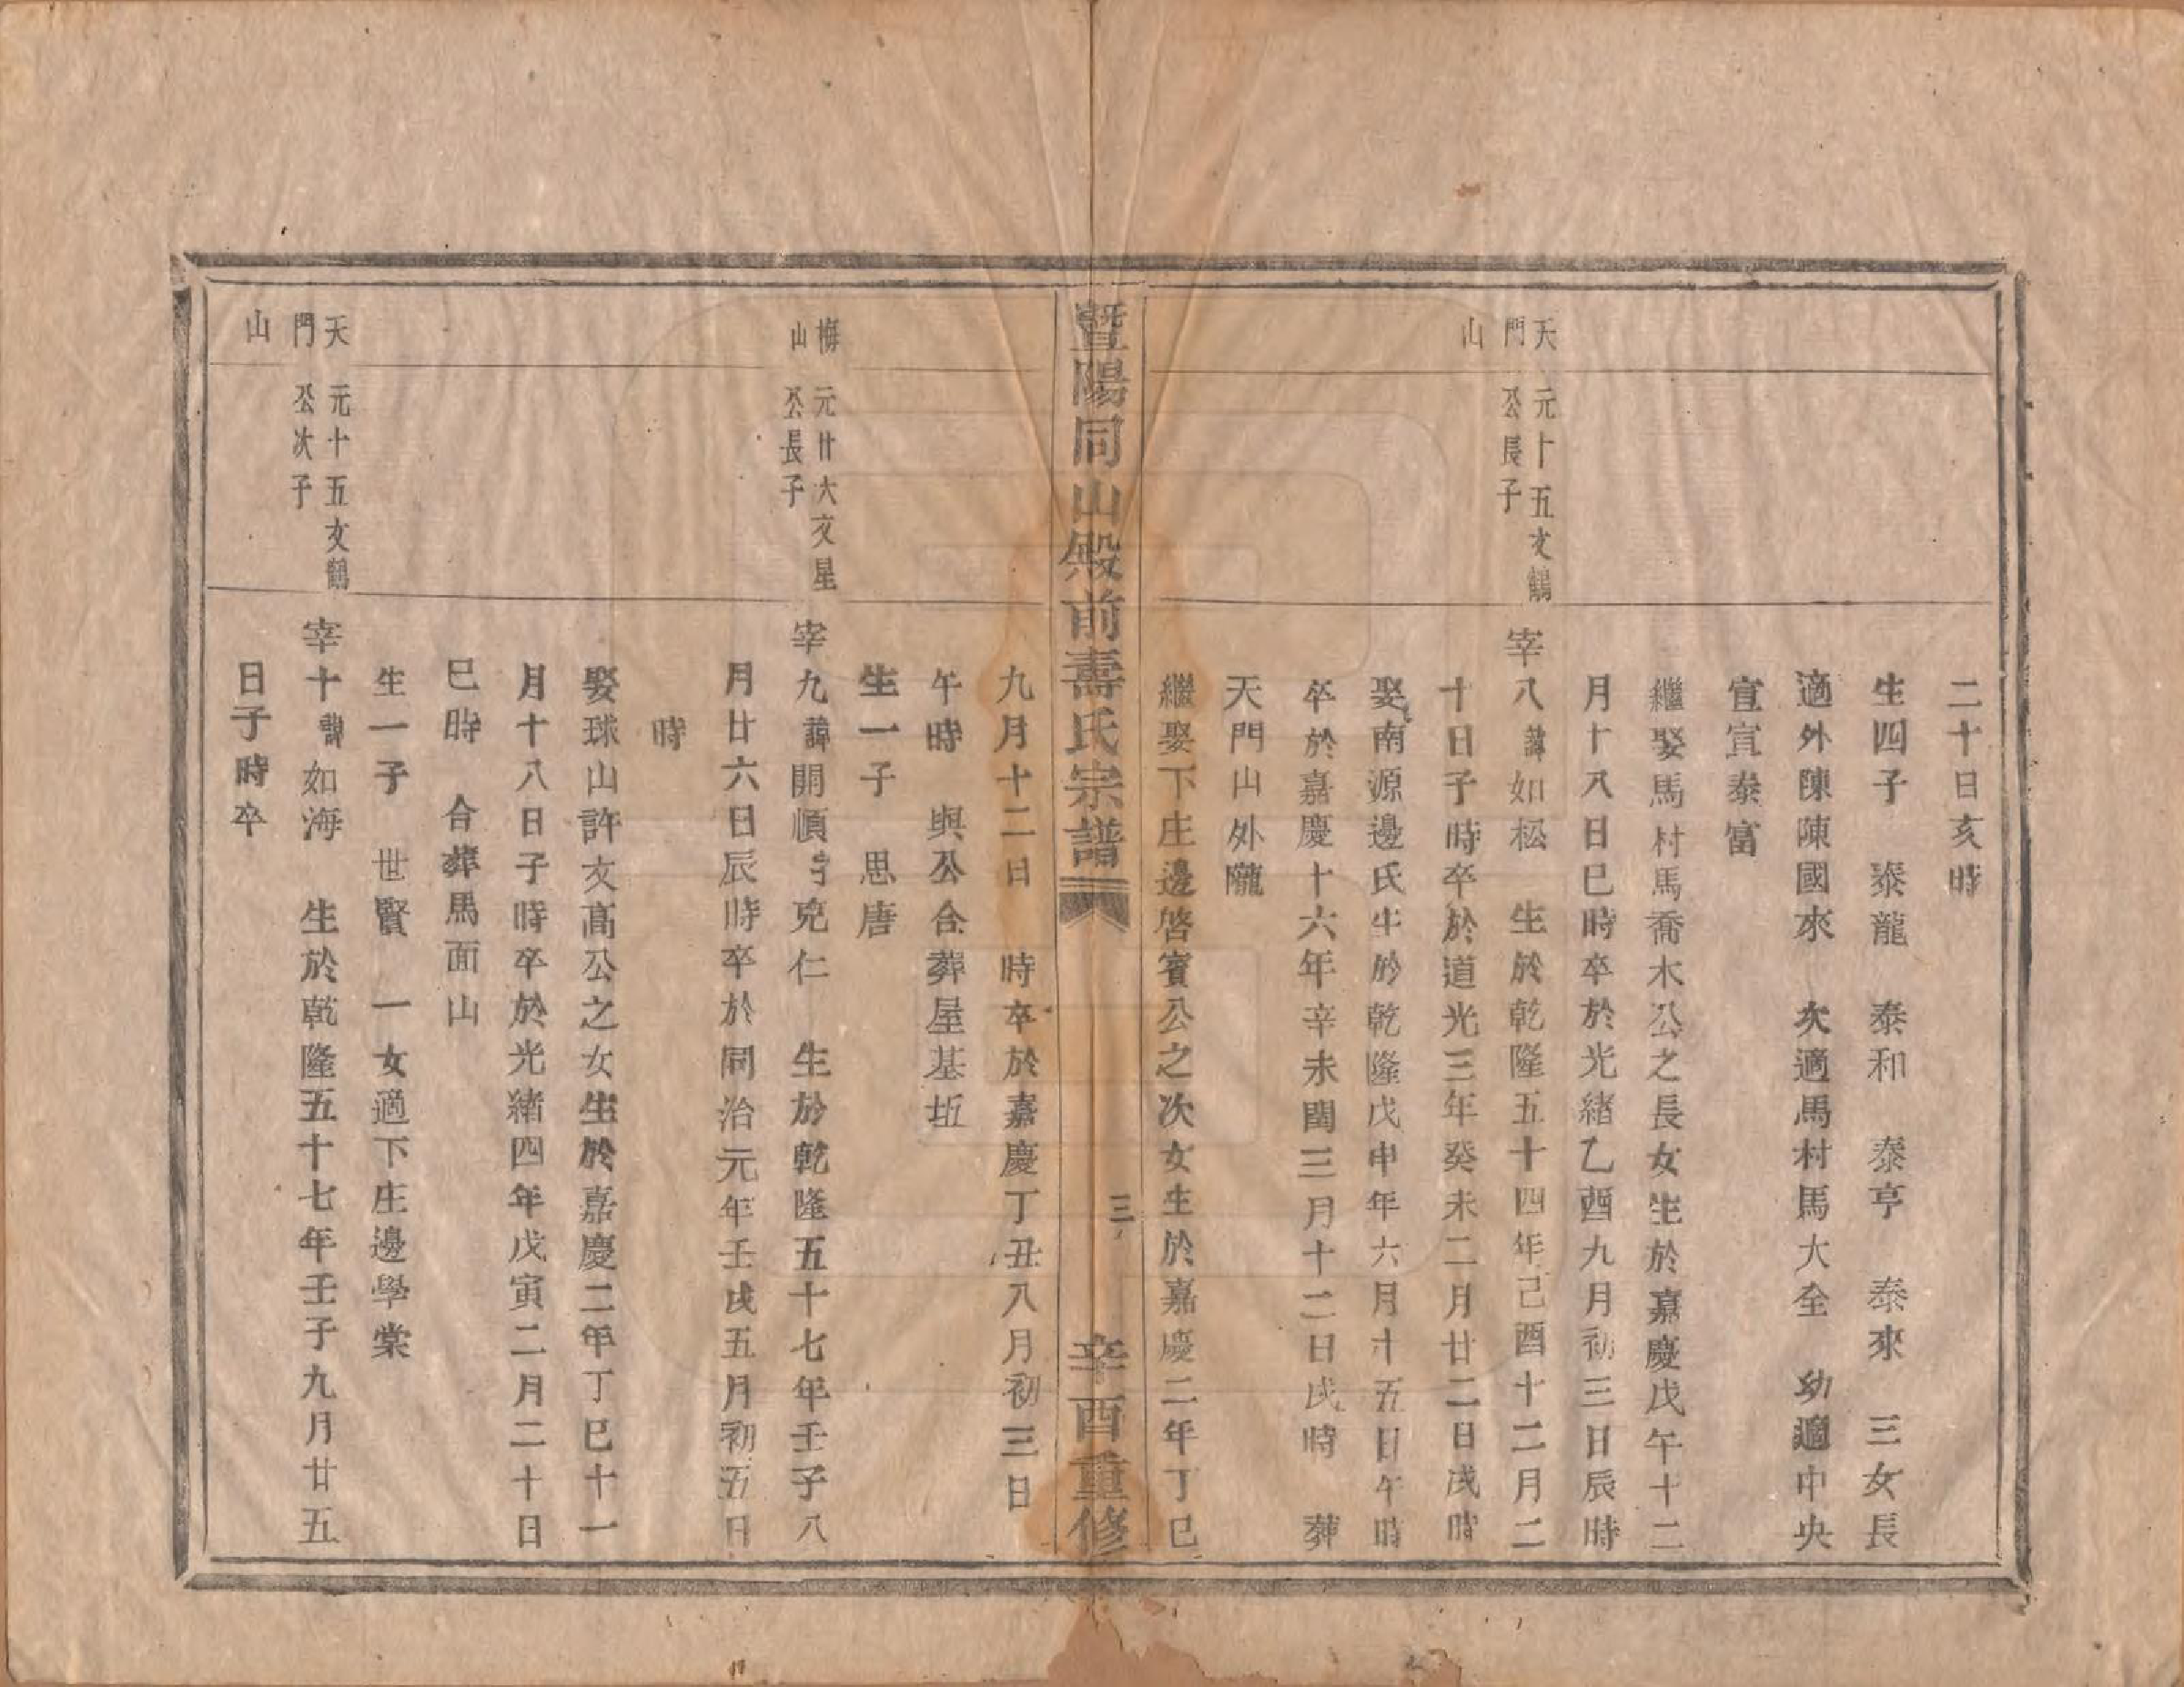 二十日亥時
生四子　泰龍　泰和　泰亨　泰來　三女長
適外陳陳國來　次適馬村馬大全　幼適中央
宣宣泰富
繼娶馬村馬喬木公之長女生於嘉慶戊午十二
月十八日巳時卒於光緒乙酉九月初三日辰時
天門山
元十五文鶴公長子
宰八諱如松　生於乾隆五十四年己酉十二月二
十日子時卒於道光三年癸未二月廿二日戌時
娶南源邊氏生於乾隆戊申年六月十五日午時
卒於嘉慶十六年辛未閏三月十二日戌時　葬
天門山外隴
繼娶下庄邊啓賓公之次女生於嘉慶二年丁巳
暨陽同山殿前壽氏宗譜　三　辛酉重修
九月十二日　時卒於嘉慶丁丑八月初三日
午時　與公合葬屋基坵
生一子　思唐
梅山
元廿大文星公長子
宰九諱開順字克仁　生於乾隆五十七年壬子八
月廿六日辰時卒於同治元年壬戌五月初五日
時
娶球山許文高公之女生於嘉慶二年丁巳十一
月十八日子時卒於光緒四年戊寅二月二十日
巳時　合葬馬面山
生一子　世賢　一女適下庄邊學棠
天門山
元十五文鶴公次子
宰十諱如海　生於乾隆五十七年壬子九月廿五
日子時卒